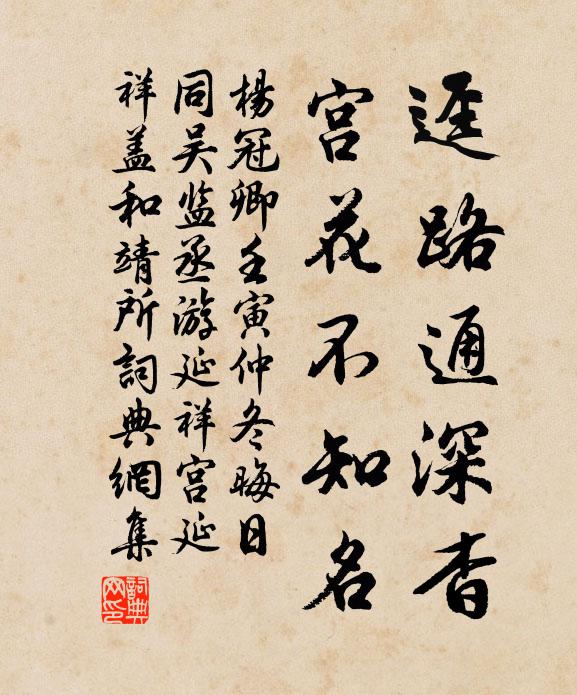 逕路通深杳
宫花不知名
楊冠卿壬寅仲冬晦日
同吴监丞游延祥宫延
祥盖和靖所詞典網集
詞典
网印